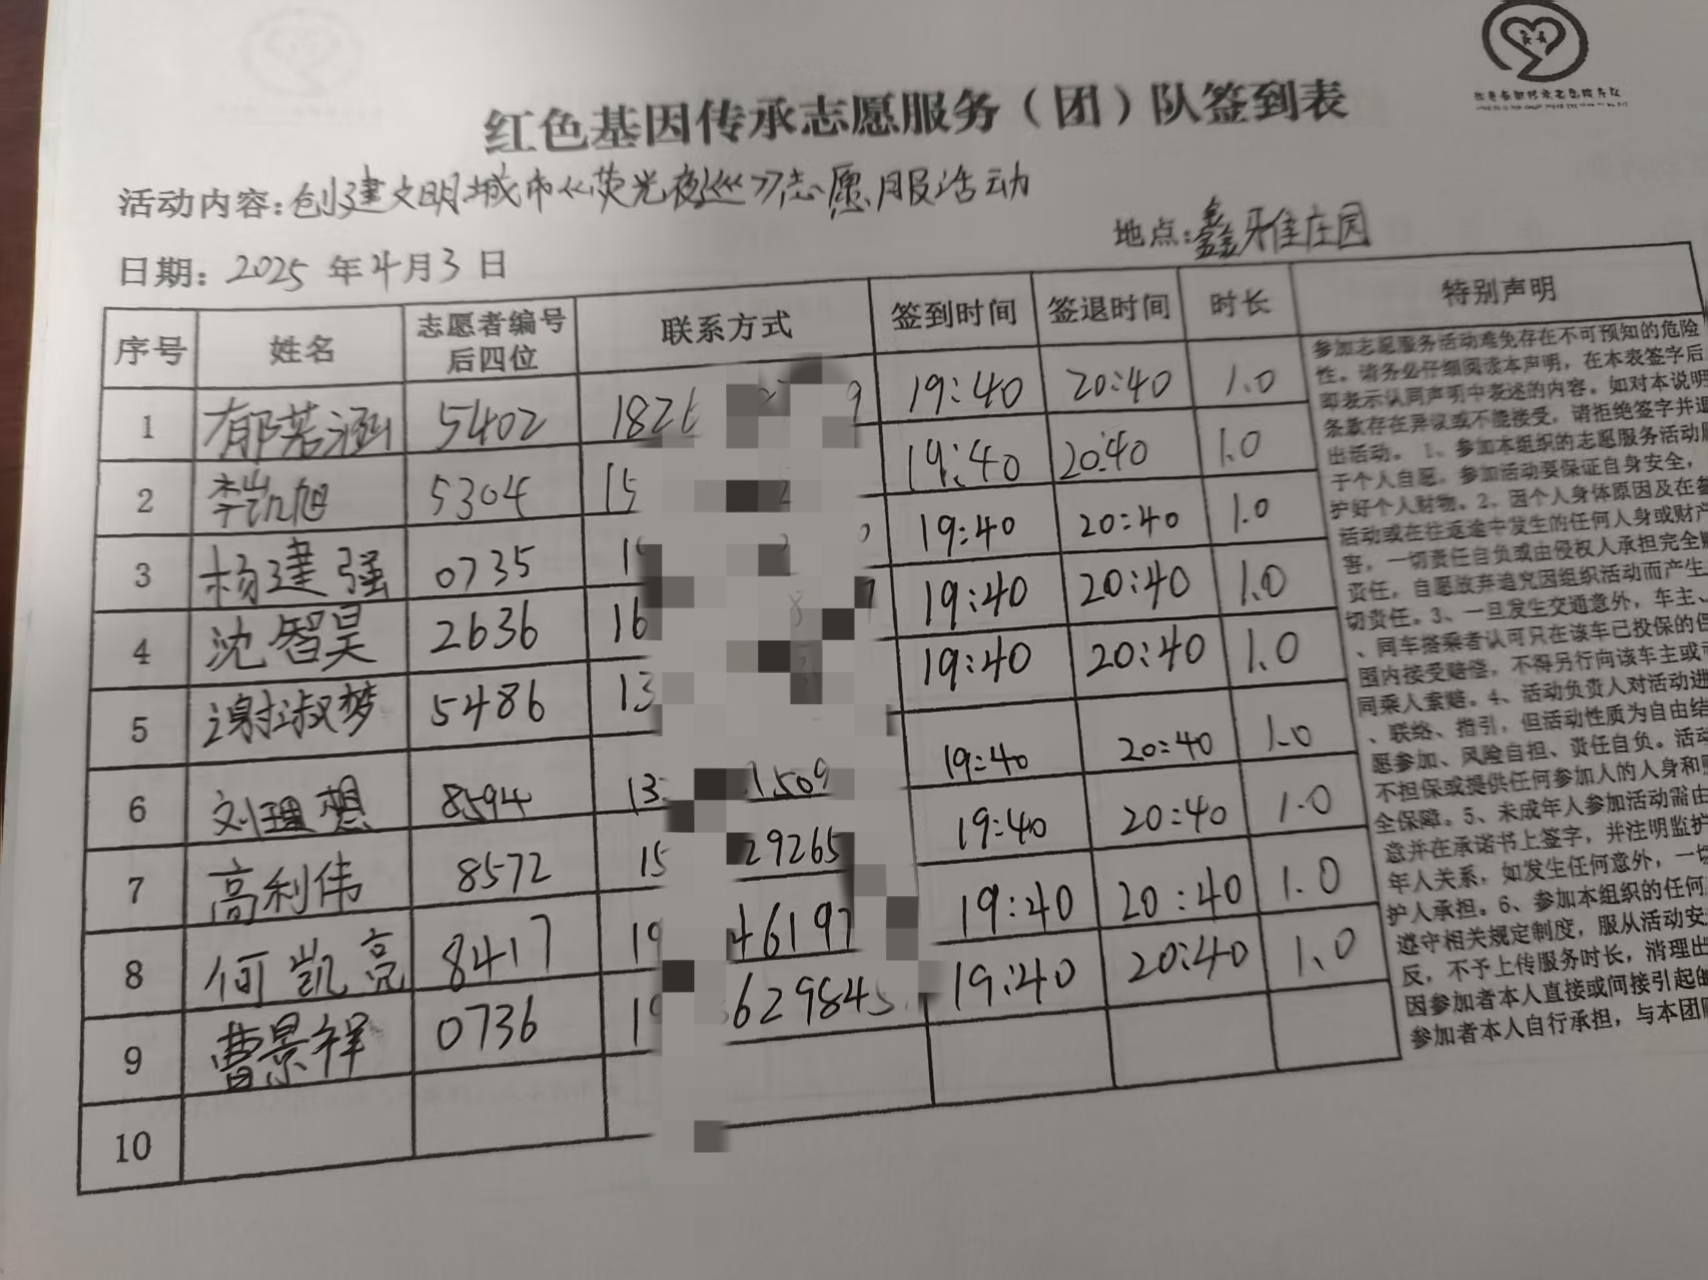 红色基因传承志愿服务（团）队签到表
活动内容：创建文明城市《荧光夜巡》志愿服活动
地点：鑫雅佳庄园
日期：2025 年 4 月 3 日
序号 姓名 志愿者编号后四位 联系方式 签到时间 签退时间 时长 特别声明
1 郁若涵 5402 182 19:40 20:40 1.0
2 李凯旭 5304 15 19:40 20:40 1.0
3 杨建强 0735 1 19:40 20:40 1.0
4 沈智昊 2636 16 19:40 20:40 1.0
5 谢淑梦 5486 13 19:40 20:40 1.0
6 刘理想 8594 13 1509 19:40 20:40 1.0
7 高利伟 8572 15 29265 19:40 20:40 1.0
8 何凯亮 8417 19 46197 19:40 20:40 1.0
9 曹景祥 0736 1 629845 19:40 20:40 1.0
10
参加志愿服务活动难免存在不可预知的危险
性。请务必仔细阅读本声明，在本表签字后
即表示认同声明中表述的内容。如对本说明
条款存在异议或不能接受，请拒绝签字并退
出活动。1、参加本组织的志愿服务活动
于个人自愿。参加活动要保证自身安全，
护好个人财物。2、因个人身体原因及在参
活动或在往返途中发生的任何人身或财产
害，一切责任自负或由侵权人承担完全
责任，自愿放弃追究因组织活动而产生
切责任。3、一旦发生交通意外，车主、
、同车搭乘者认可只在该车已投保的
围内接受赔偿，不得另行向该车主或
同乘人索赔。4、活动负责人对活动进
、联络、指引，但活动性质为自由结
愿参加、风险自担、责任自负。活动
不担保或提供任何参加人的人身和
全保障。5、未成年人参加活动需由
意并在承诺书上签字，并注明监护
年人关系，如发生任何意外，一切
护人承担。6、参加本组织的任何
遵守相关规定制度，服从活动安
反，不予上传服务时长，清理出
因参加者本人直接或间接引起的
参加者本人自行承担，与本团